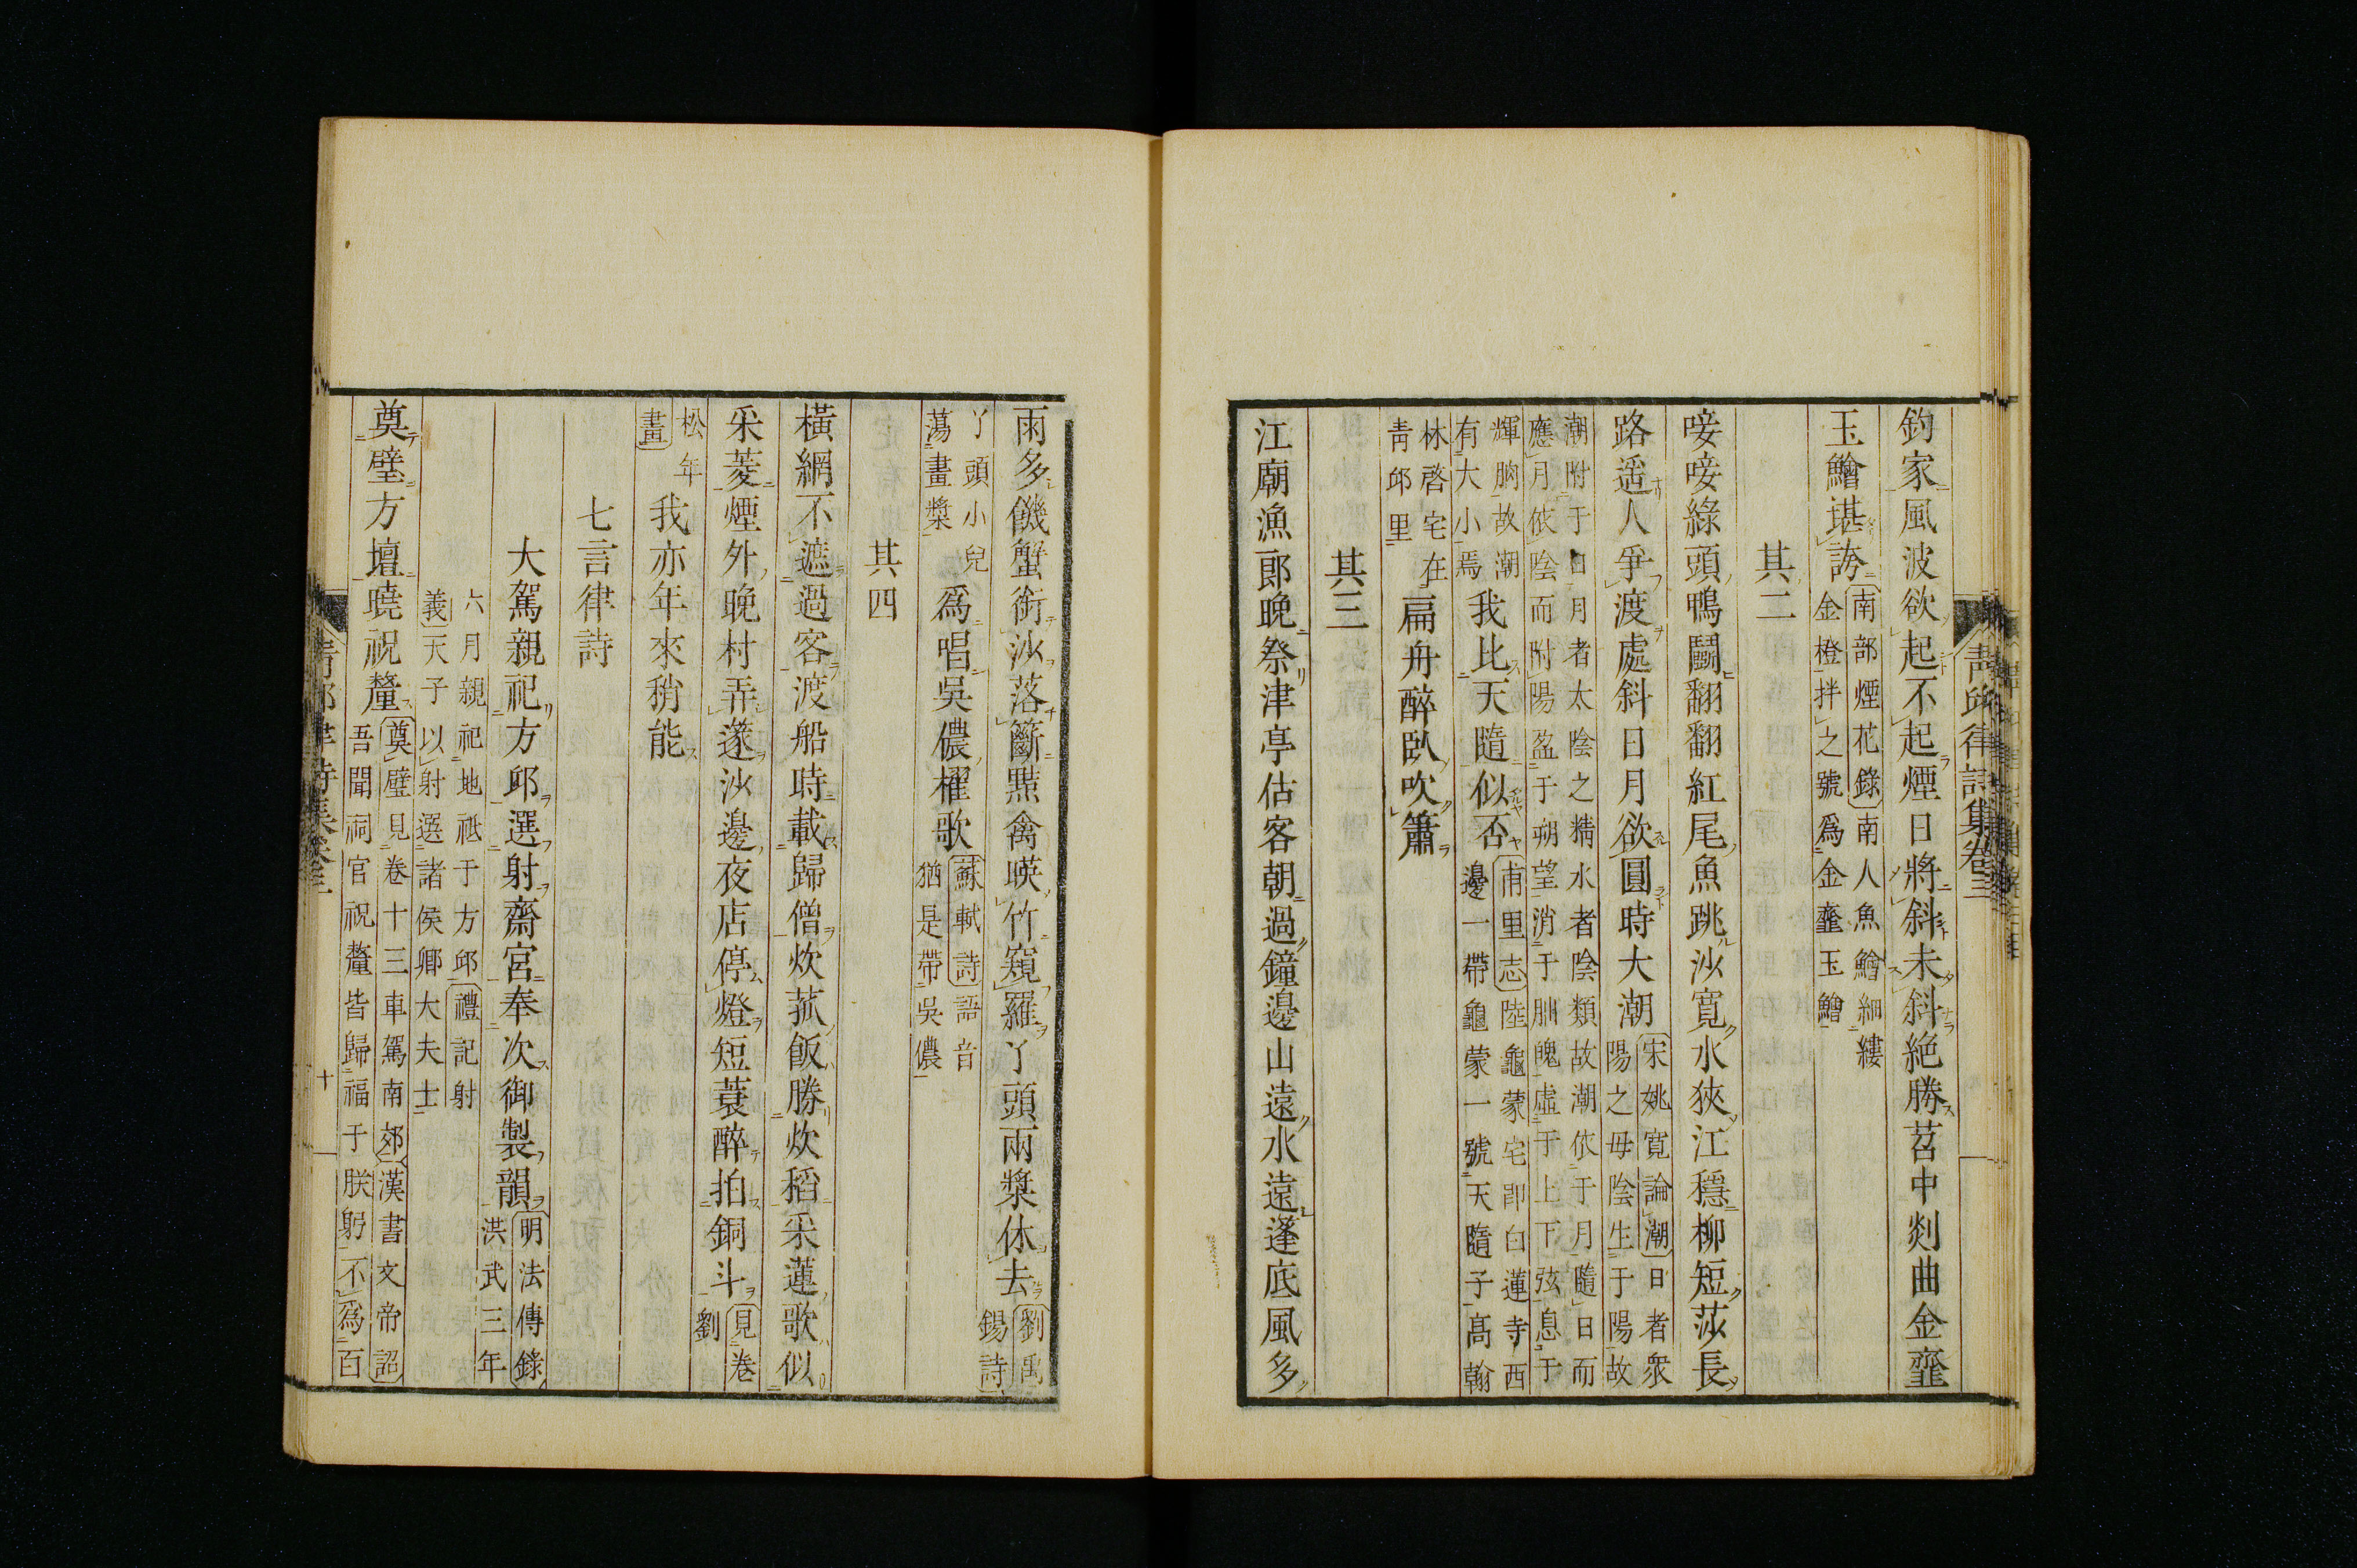 靑邱律詩集卷三
釣家風波欲起不起煙日將斜未斜絶勝苕中剡曲金虀
玉鱠堪誇
南部煙花錄南人魚鱠細縷
金橙拌之號爲金虀玉鱠
其二
唼唼綠頭鴨鬭翻翻紅尾魚跳沙寬水狹江穩柳短莎長
路遥人爭渡處斜日月欲圓時大潮
宋姚寛論潮日者衆
陽之母陰生于陽故
潮附于日月者太陰之精水者陰類故潮依于月隨日而
應月依陰而附陽盈于朔望消于朏魄虛于上下弦息于
輝朒故潮
有大小焉
我比天隨似否
甫里志陸龜蒙宅卽白蓮寺西
邊一帶龜蒙一號天隨子高翰
林啓宅在
靑邱里
扁舟醉臥吹簫
其三
江廟漁郎晚祭津亭估客朝過鐘邊山遠水遠蓬底風多
雨多饑蟹銜沙落籪點禽暎竹窺羅丫頭兩槳休去
劉禹
錫詩
丫頭小兒
蕩畫槳
爲唱吳儂櫂歌
蘇軾詩語音
猶是帶吳儂
其四
橫網不遮過客渡船時載歸僧炊菰飯勝炊稻采蓮歌似
采菱煙外晚村弄篴沙邊夜店停燈短蓑醉拍銅斗
見卷
劉
松年
畫
我亦年來稍能
七言律詩
大駕親祀方邱選射齋宮奉次御製韻
明法傳錄
洪武三年
六月親祀地祗于方邱禮記射
義天子以射選諸侯卿大夫士
奠璧方壇曉祝釐
奠璧見卷十三車駕南郊漢書文帝詔
吾聞祠官祝釐皆歸福于朕躬不爲百
靑邱律詩集卷三
十